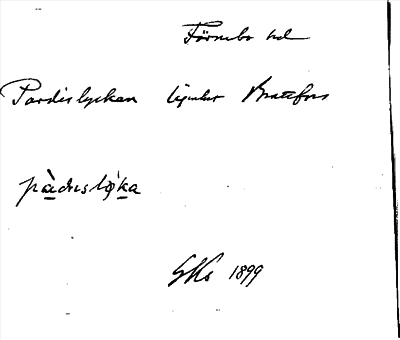 Färnebo hd
Pardislyckan lägenhet Brattfors
pàdislýka
SKs 1899